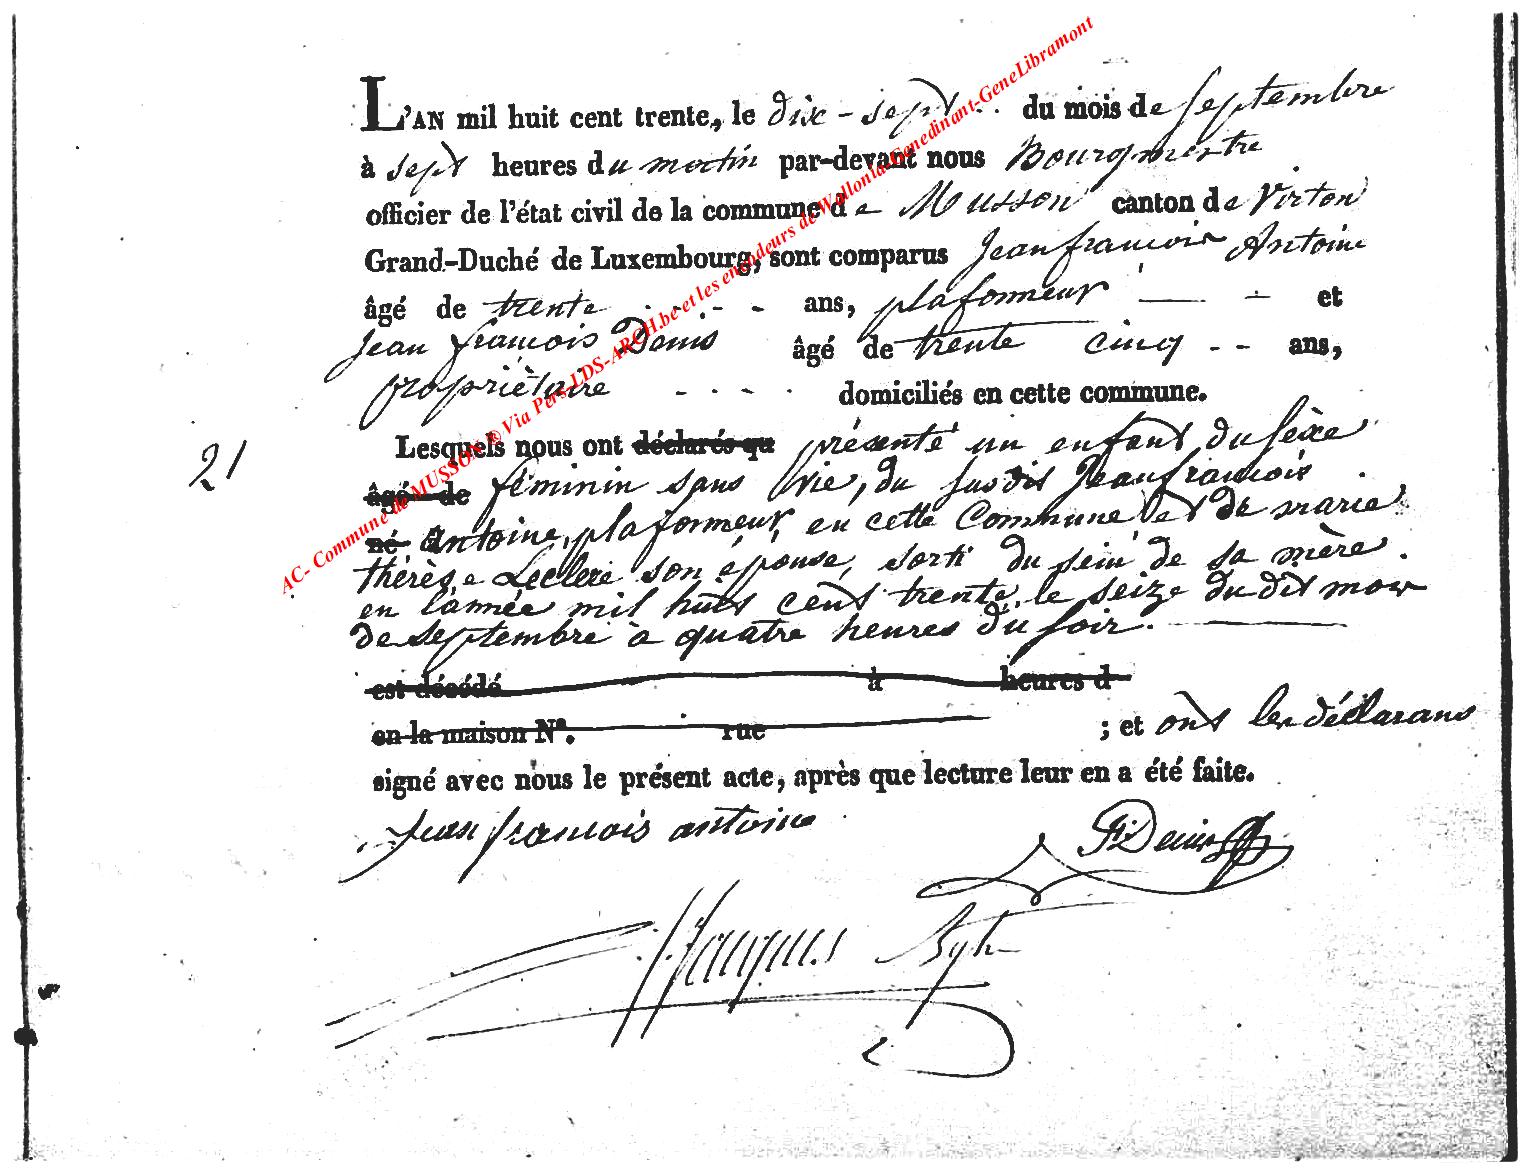 L'AN mil huit cent trente, le dix-sept du mois de septembre
à sept heures du matin par-devant nous Bourgmestre
officier de l'état civil de la commune de Musson canton de Virton
Grand-Duché de Luxembourg, sont comparus Jean françois Antoine
âgé de trente ans, plafonneur et
Jean françois Denis âgé de trente cinq ans,
propriétaire domiciliés en cette commune.
21 Lesquels nous ont déclarés qu présenté un enfant du sèxe
âgé de féminin sans vie, du susdit Jean françois
né Antoine, plafonneur, en cette Commune et de marie
thérèse Leclere son épouse, sorti du sein de sa mère
en l'année mil huit cent trente, le seize du dit mois
de septembre à quatre heures du soir.
est décédé à heures d
en la maison N°. rue ; et ont les déclarans
signé avec nous le présent acte, après que lecture leur en a été faite.
Jean françois antoine
Denis
AC- Commune de MUSSON © Via Pers-LDS-ARCH.be et les encodeurs de Wallonia-Genedinant-GeneLibramont